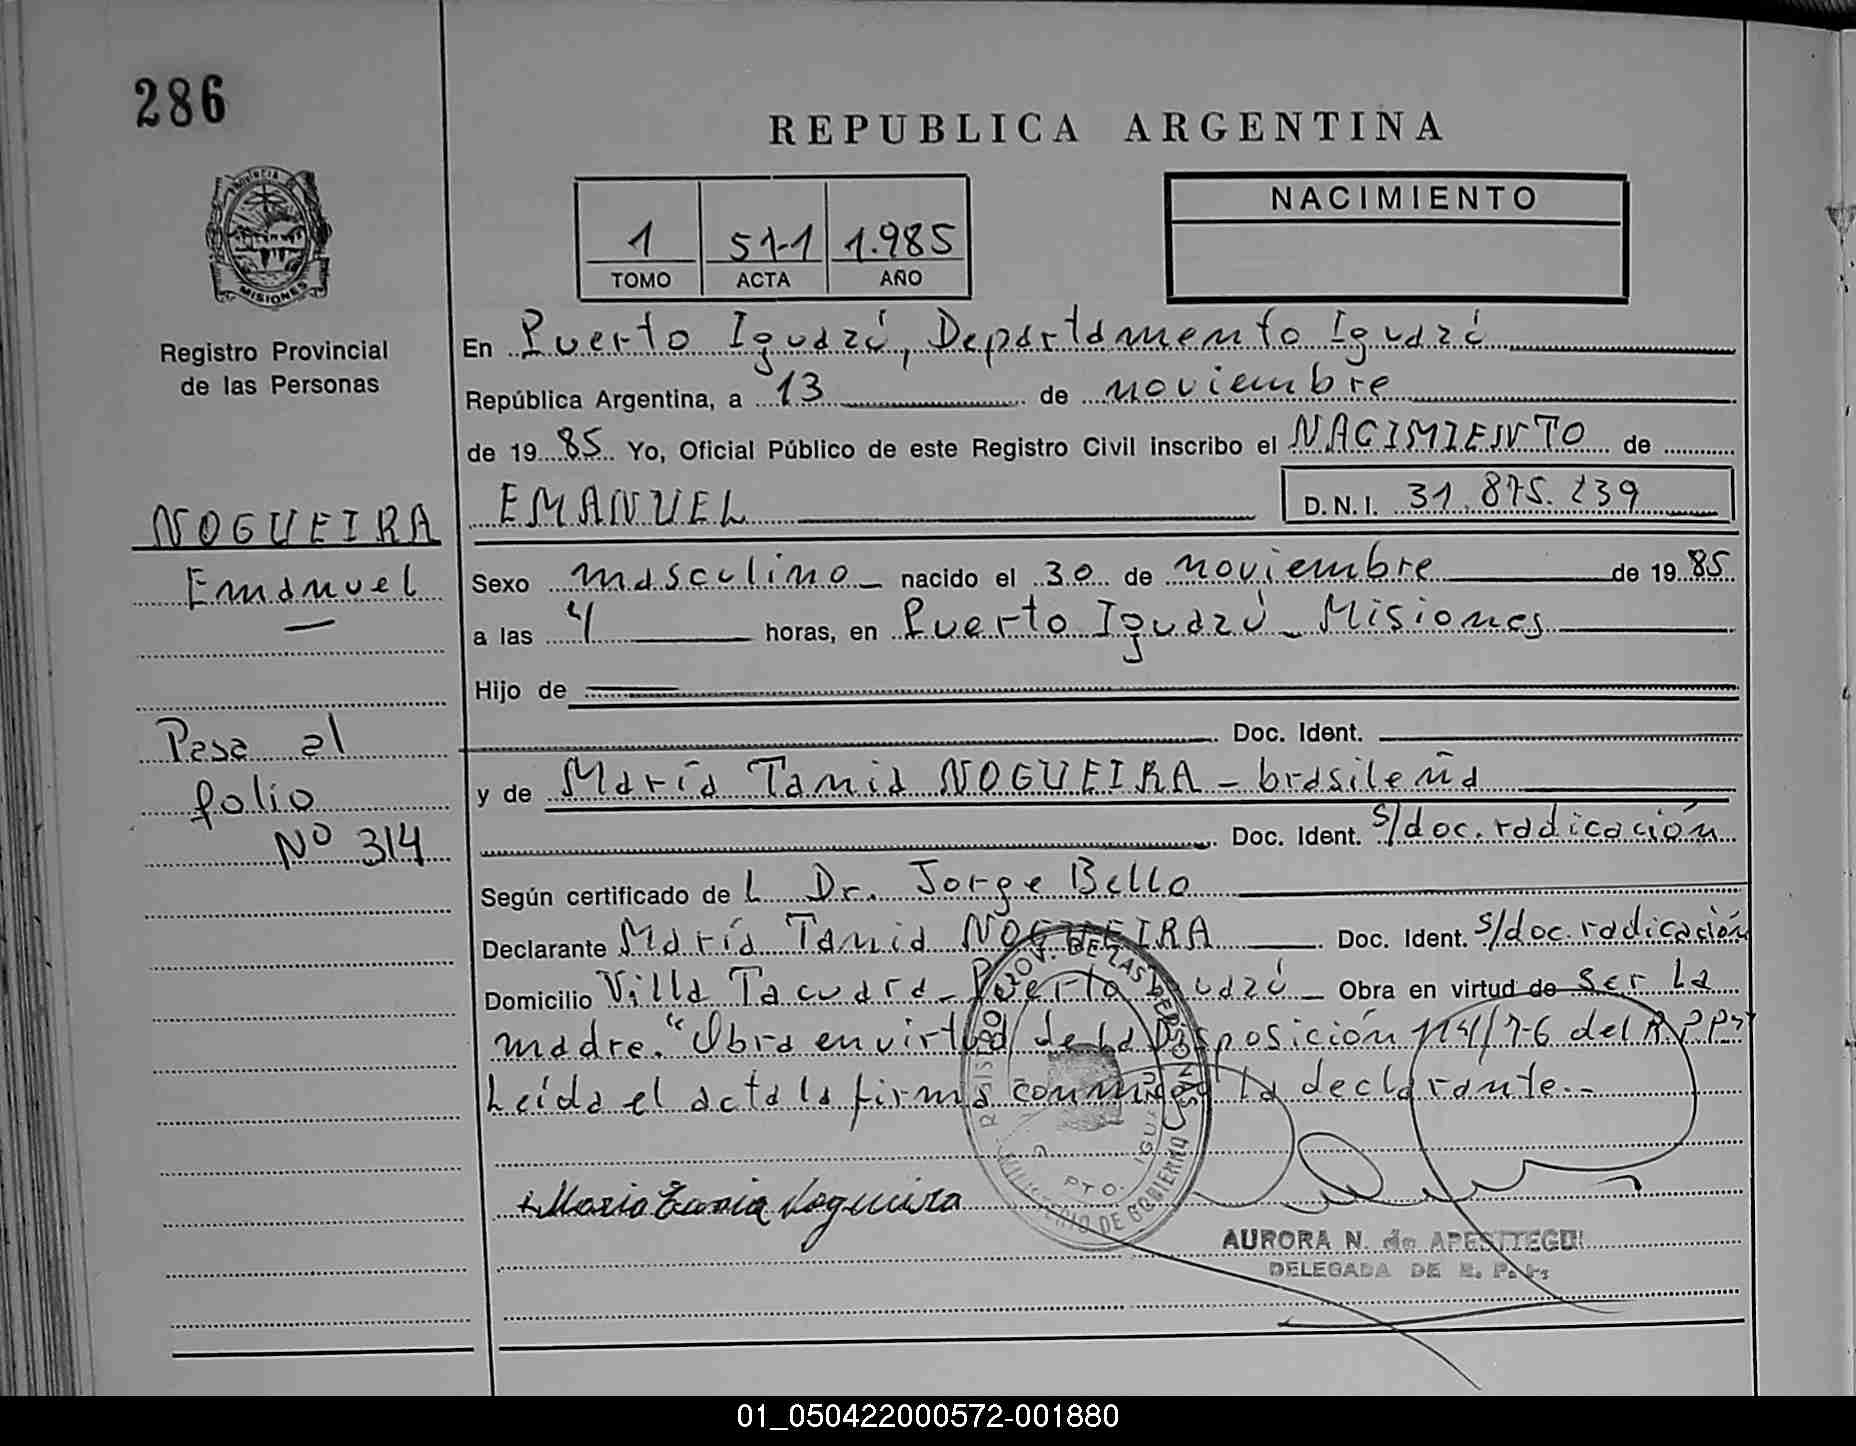 286
REPUBLICA ARGENTINA
PROVINCIA DE
MISIONES
Registro Provincial
de las Personas
1 511 1.985
TOMO ACTA AÑO
NACIMIENTO
En Puerto Iguazú, Departamento Iguazú
República Argentina, a 13 de noviembre
de 19 85 Yo, Oficial Público de este Registro Civil inscribo el NACIMIENTO de
EMANUEL
D.N.I. 31.875.239
NOGUEIRA
Emanuel
Sexo masculino nacido el 30 de noviembre de 19 85
a las 4 horas, en Puerto Iguazú - Misiones
Hijo de
Doc. Ident.
Pasa al
folio
Nº 314
y de María Tania NOGUEIRA - brasileña
Doc. Ident. s/doc. radicación
Según certificado de L Dr. Jorge Bello
Declarante María Tania NOGUEIRA Doc. Ident. s/doc radicación
Domicilio Villa Tacuara - Puerto Iguazú - Obra en virtud de ser la
madre. "Obra en virtud de la Disposición 114/76 del R.P.P."
Leída el acta la firma conmigo la declarante.-
María Tania Nogueira
AURORA N. de APESTEGUI
DELEGADA DE R. P. P.
01_050422000572-001880